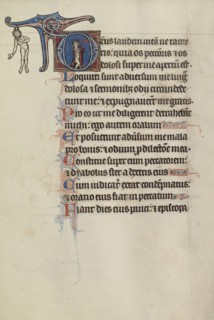 Deus laudem meā ne tacue
ris: quia os peccatoris et os
dolosi super me apertū est.
Locuti sunt adversum me ling
dolosa et sermonibz odii circumdede
runt me: et expugnaverunt me gratis
Pro eo ut me diligerent detrahebant
michi: ego autem orabam
Et posuerunt adversum me mala
pro bonis: et odium pro dilectione mea.
Constitue super eum peccatorem:
et dyabolus stet a dextris eius
Cum iudicatur exeat condempnatus:
et oratio eius fiat in peccatum
Fiant dies eius pauci: et episcopa